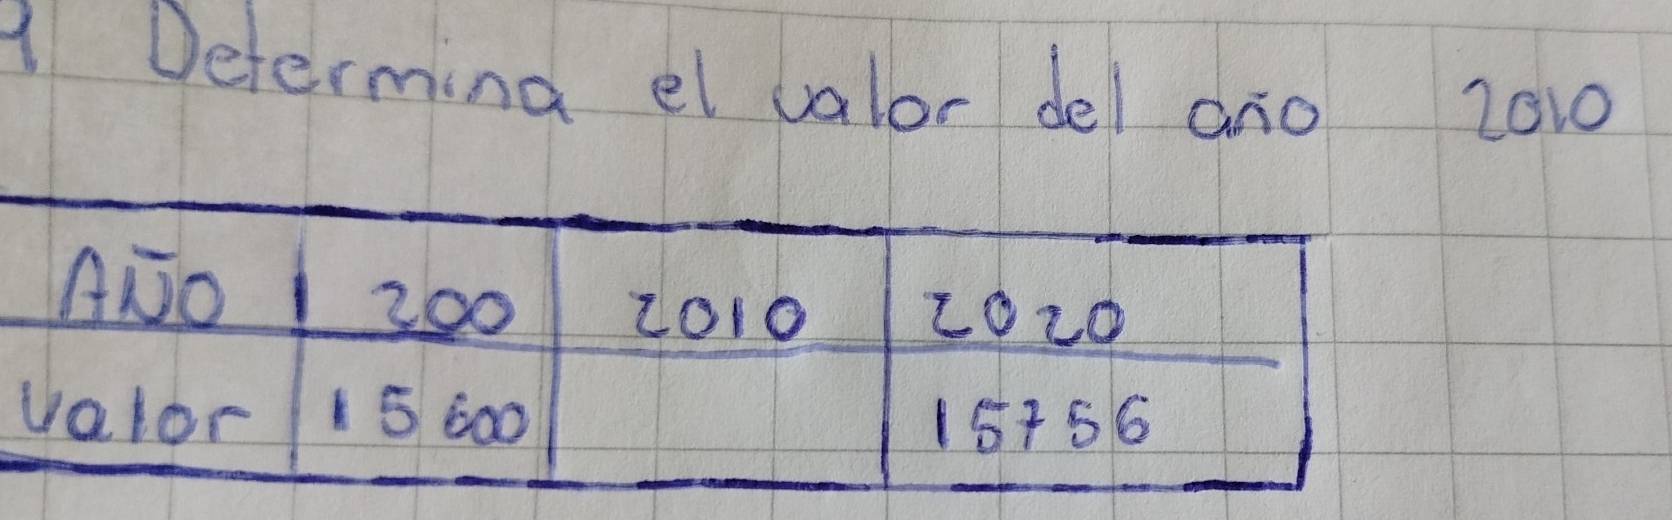 9 Determina el valor del año 2010
AÑO 200 2010 2020
valor 15600 15756